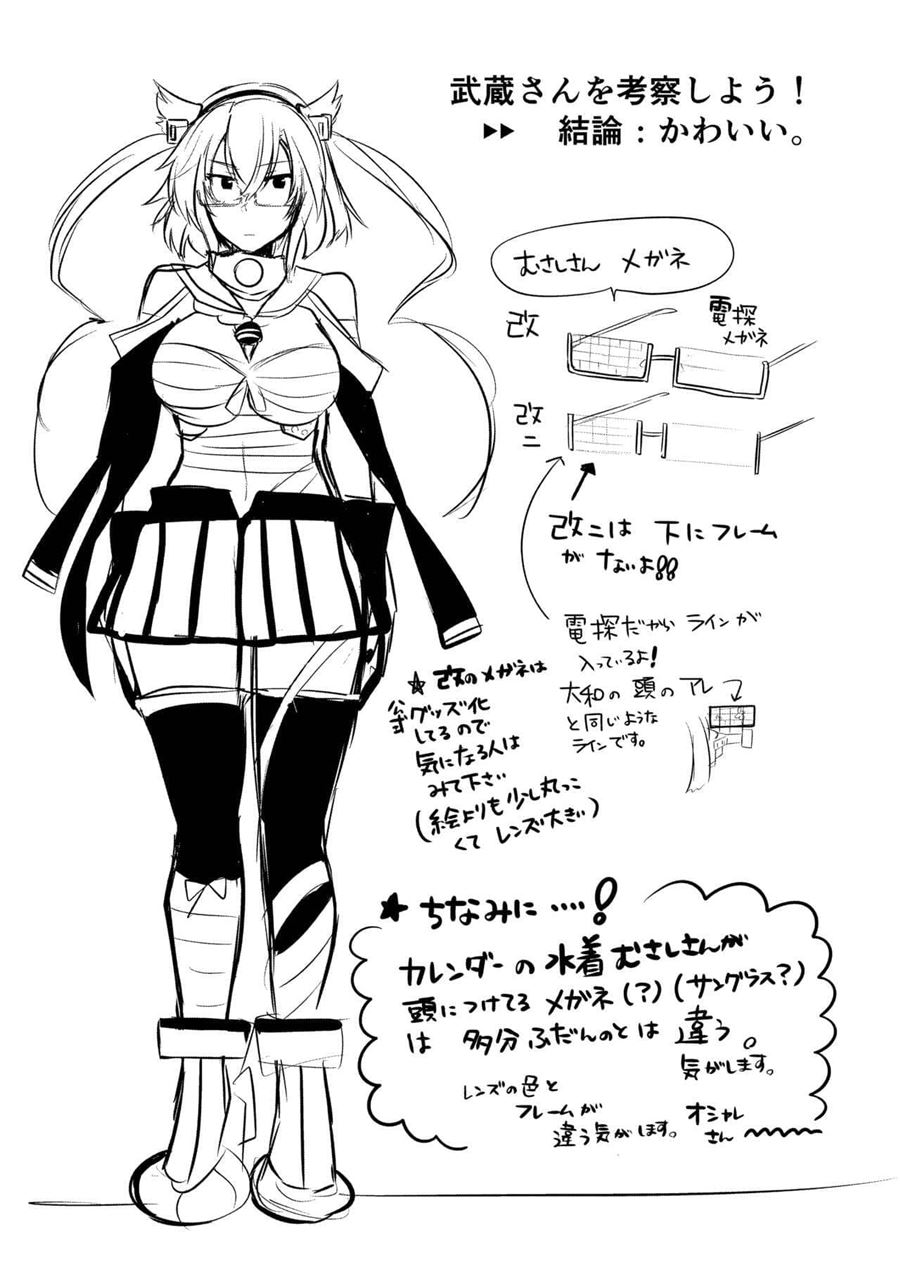 武蔵さんを考察しよう！
▶▶ 結論：かわいい。
むさしさん メガネ
改
電探
メガネ
改
二
改二は 下にフレーム
が ないよ!!
電探だから ラインが
入っているよ！
大和の 頭の アレ
と同じような
ラインです。
★ 改のメガネは
公式グッズ化
してるので
気になる人は
みて下さい
(絵よりも少し丸っこ
くて レンズ大きい)
★ ちなみに…！
カレンダーの 水着 むさしさんが
頭につけてる メガネ(？)(サングラス？)
は 多分 ふだんのとは 違う。
気がします。
レンズの色と
フレームが
違う気がします。
オシャレ
さん